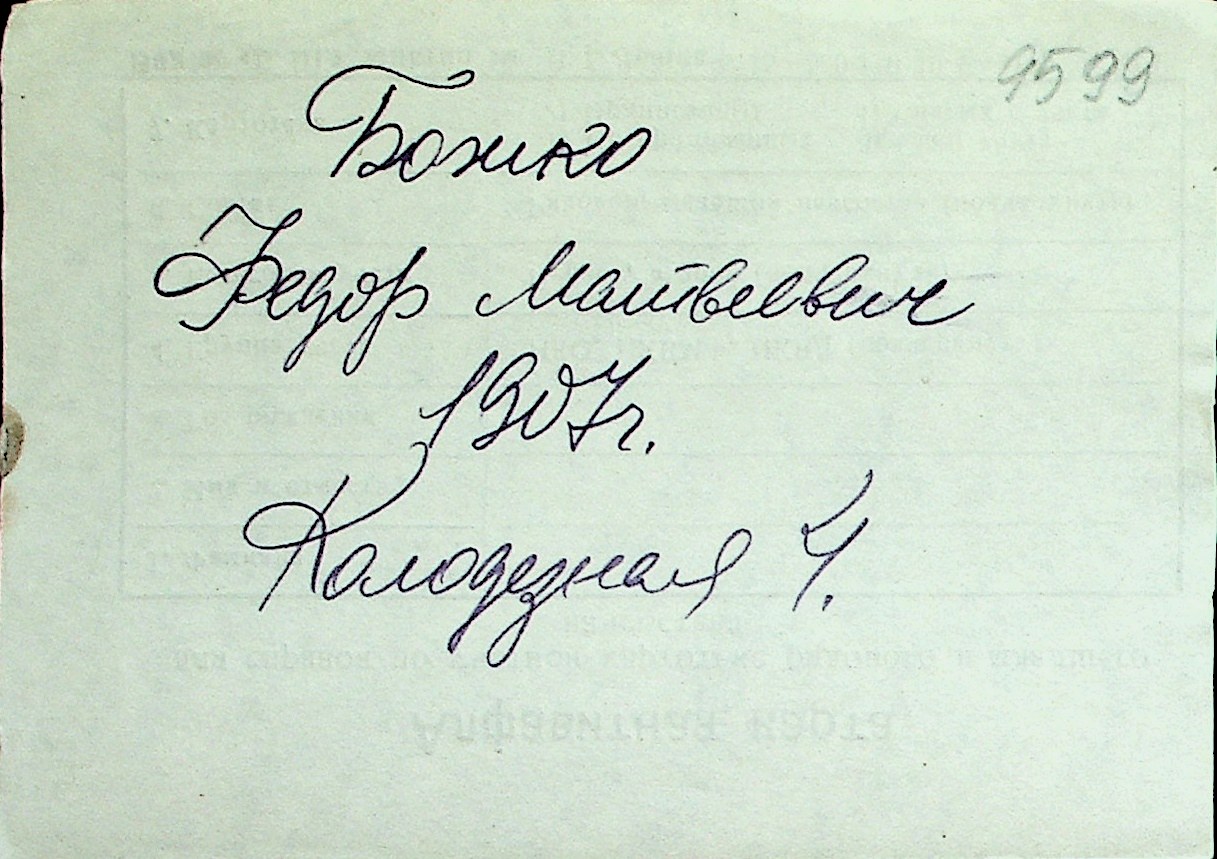 9599
Божко
Федор Матвеевич
1907г.
Колодезная 4.